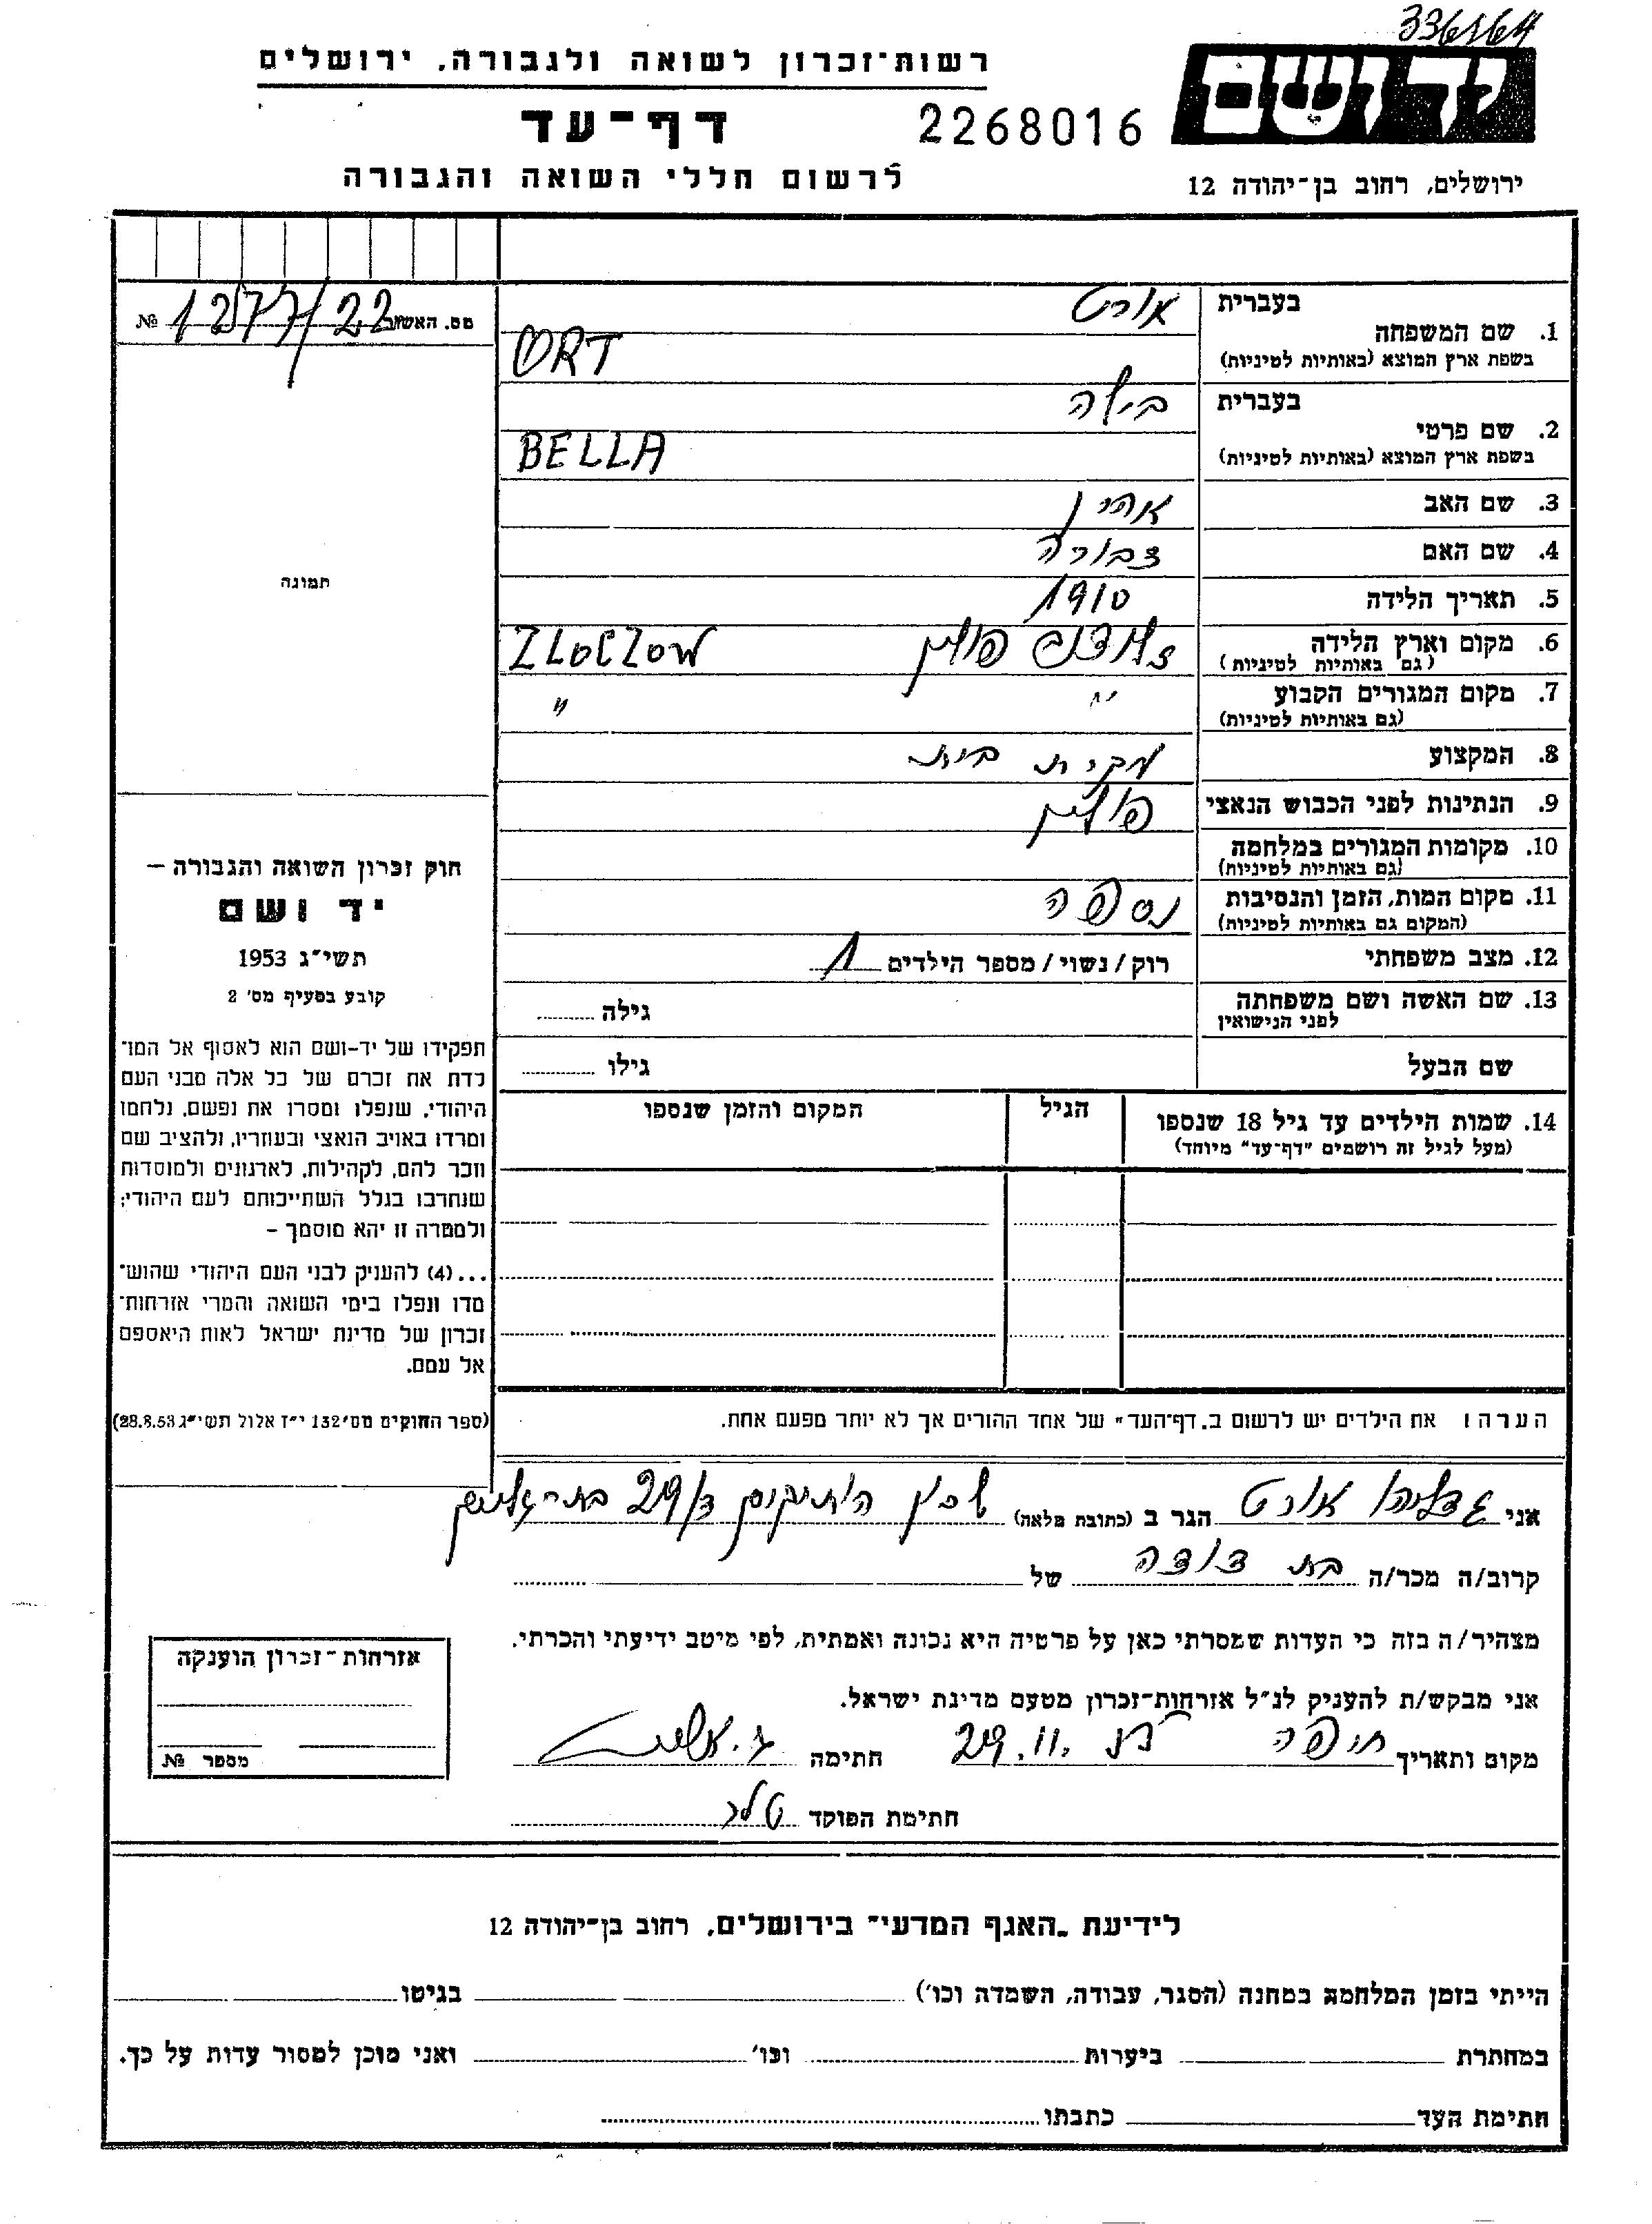 336164
רשות־זכרון לשואה ולגבורה, ירושלים
יד ושם
דף־עד
2268016
לרשום חללי השואה והגבורה
ירושלים, רחוב בן־יהודה 12
מס. האשור 1277/22 №
תמונה
חוק זכרון השואה והגבורה –
יד ושם
תשי״ג 1953
קובע בסעיף מס׳ 2
תפקידו של יד-ושם הוא לאסוף אל המו־
לדת את זכרם של כל אלה מבני העם
היהודי, שנפלו ומסרו את נפשם, נלחמו
ומרדו באויב הנאצי ובעוזריו, ולהציב שם
וזכר להם, לקהילות, לארגונים ולמוסדות
שנחרבו בגלל השתייכותם לעם היהודי;
ולמטרה זו יהא מוסמך –
...(4) להעניק לבני העם היהודי שהוש־
מדו ונפלו בימי השואה והמרי אזרחות־
זכרון של מדינת ישראל לאות היאספם
אל עמם.
(ספר החוקים מס׳ 132 י״ז אלול תשי״ג 28.8.53)
בעברית אורט
1. שם המשפחה
בשפת ארץ המוצא (באותיות לטיניות) ORT
בעברית בילה
2. שם פרטי
בשפת ארץ המוצא (באותיות לטיניות) BELLA
3. שם האב אהרן
4. שם האם דבורה
5. תאריך הלידה 1910
6. מקום וארץ הלידה פולין ZLOCZOW
(גם באותיות לטיניות)
7. מקום המגורים הקבוע " "
(גם באותיות לטיניות)
8. המקצוע עקרת בית
9. הנתינות לפני הכבוש הנאצי פולין
10. מקומות המגורים במלחמה
(גם באותיות לטיניות)
11. מקום המות, הזמן והנסיבות נספה
(המקום גם באותיות לטיניות)
12. מצב משפחתי רוק / נשוי / מספר הילדים 1
13. שם האשה ושם משפחתה גילה
לפני הנישואין
שם הבעל גילו
14. שמות הילדים עד גיל 18 שנספו הגיל המקום והזמן שנספו
(מעל לגיל זה רושמים "דף־עד" מיוחד)
הערה: את הילדים יש לרשום ב„דף־העד" של אחד ההורים אך לא יותר מפעם אחת.
אני גדליהו אורט הגר ב (כתובת מלאה) שכון הותיקים 29/ד בת־גלים
קרוב/ה מכר/ה בת דודה של
מצהיר/ה בזה כי העדות שמסרתי כאן על פרטיה היא נכונה ואמתית, לפי מיטב ידיעתי והכרתי.
אני מבקש/ת להעניק לנ״ל אזרחות־זכרון מטעם מדינת ישראל.
מקום ותאריך חיפה 29.11. חתימה
חתימת הפוקד
אזרחות־זכרון הוענקה
מספר №
לידיעת „האגף המדעי" בירושלים, רחוב בן־יהודה 12
הייתי בזמן המלחמה במחנה (הסגר, עבודה, השמדה וכו׳) בגיטו
במחתרת ביערות וכו׳ ואני מוכן למסור עדות על כך.
חתימת העד כתבתו